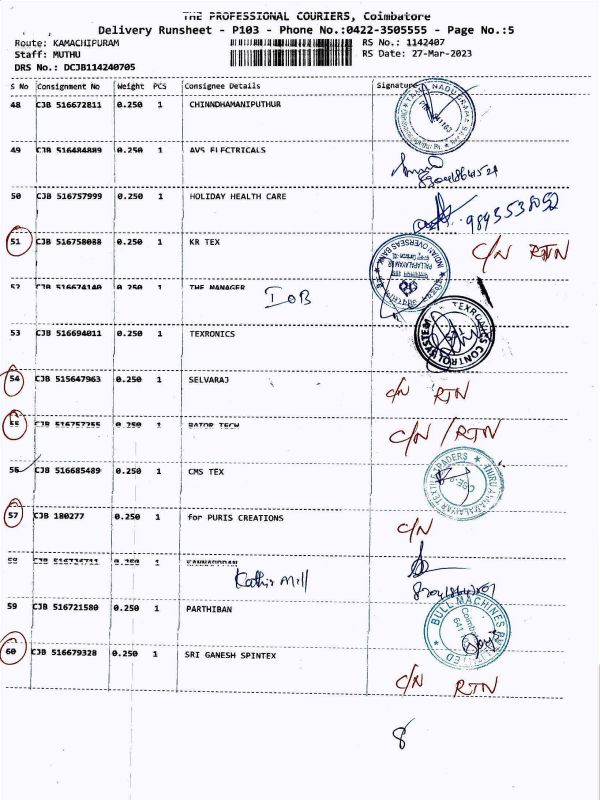 THE PROFESSIONAL COURIERS, Coimbatore
Delivery Runsheet - P103 - Phone No.:0422-3505555 - Page No.:5
Route: KAMACHIPURAM RS No.: 1142407
Staff: MUTHU RS Date: 27-Mar-2023
DRS No.: DCJB114240705
S No Consignment No Weight PCS Consignee Details Signature
48 CJB 516672811 0.250 1 CHINNDHAMANIPUTHUR
49 CJB 516484889 0.250 1 AVS ELECTRICALS
50 CJB 516757999 0.250 1 HOLIDAY HEALTH CARE
9893538092
51 CJB 516758088 0.250 1 KR TEX C/N RTN
INDIAN OVERSEAS BANK
52 CJB 516674140 0.250 1 THE MANAGER
IOB
53 CJB 516694011 0.250 1 TEXRONICS
TEXRONICS CONTROL SYSTEM
54 CJB 515647963 0.250 1 SELVARAJ
C/N RTN
55 CJB 516757255 0.250 1 BATOR TECH
C/N / RTN
56 CJB 516685489 0.250 1 CMS TEX
57 CJB 180277 0.250 1 for PURIS CREATIONS
C/N
58 0.250 1
Kathir Mill
59 CJB 516721580 0.250 1 PARTHIBAN
BULL MACHINES
60 CJB 516679328 0.250 1 SRI GANESH SPINTEX
C/N RTN
8